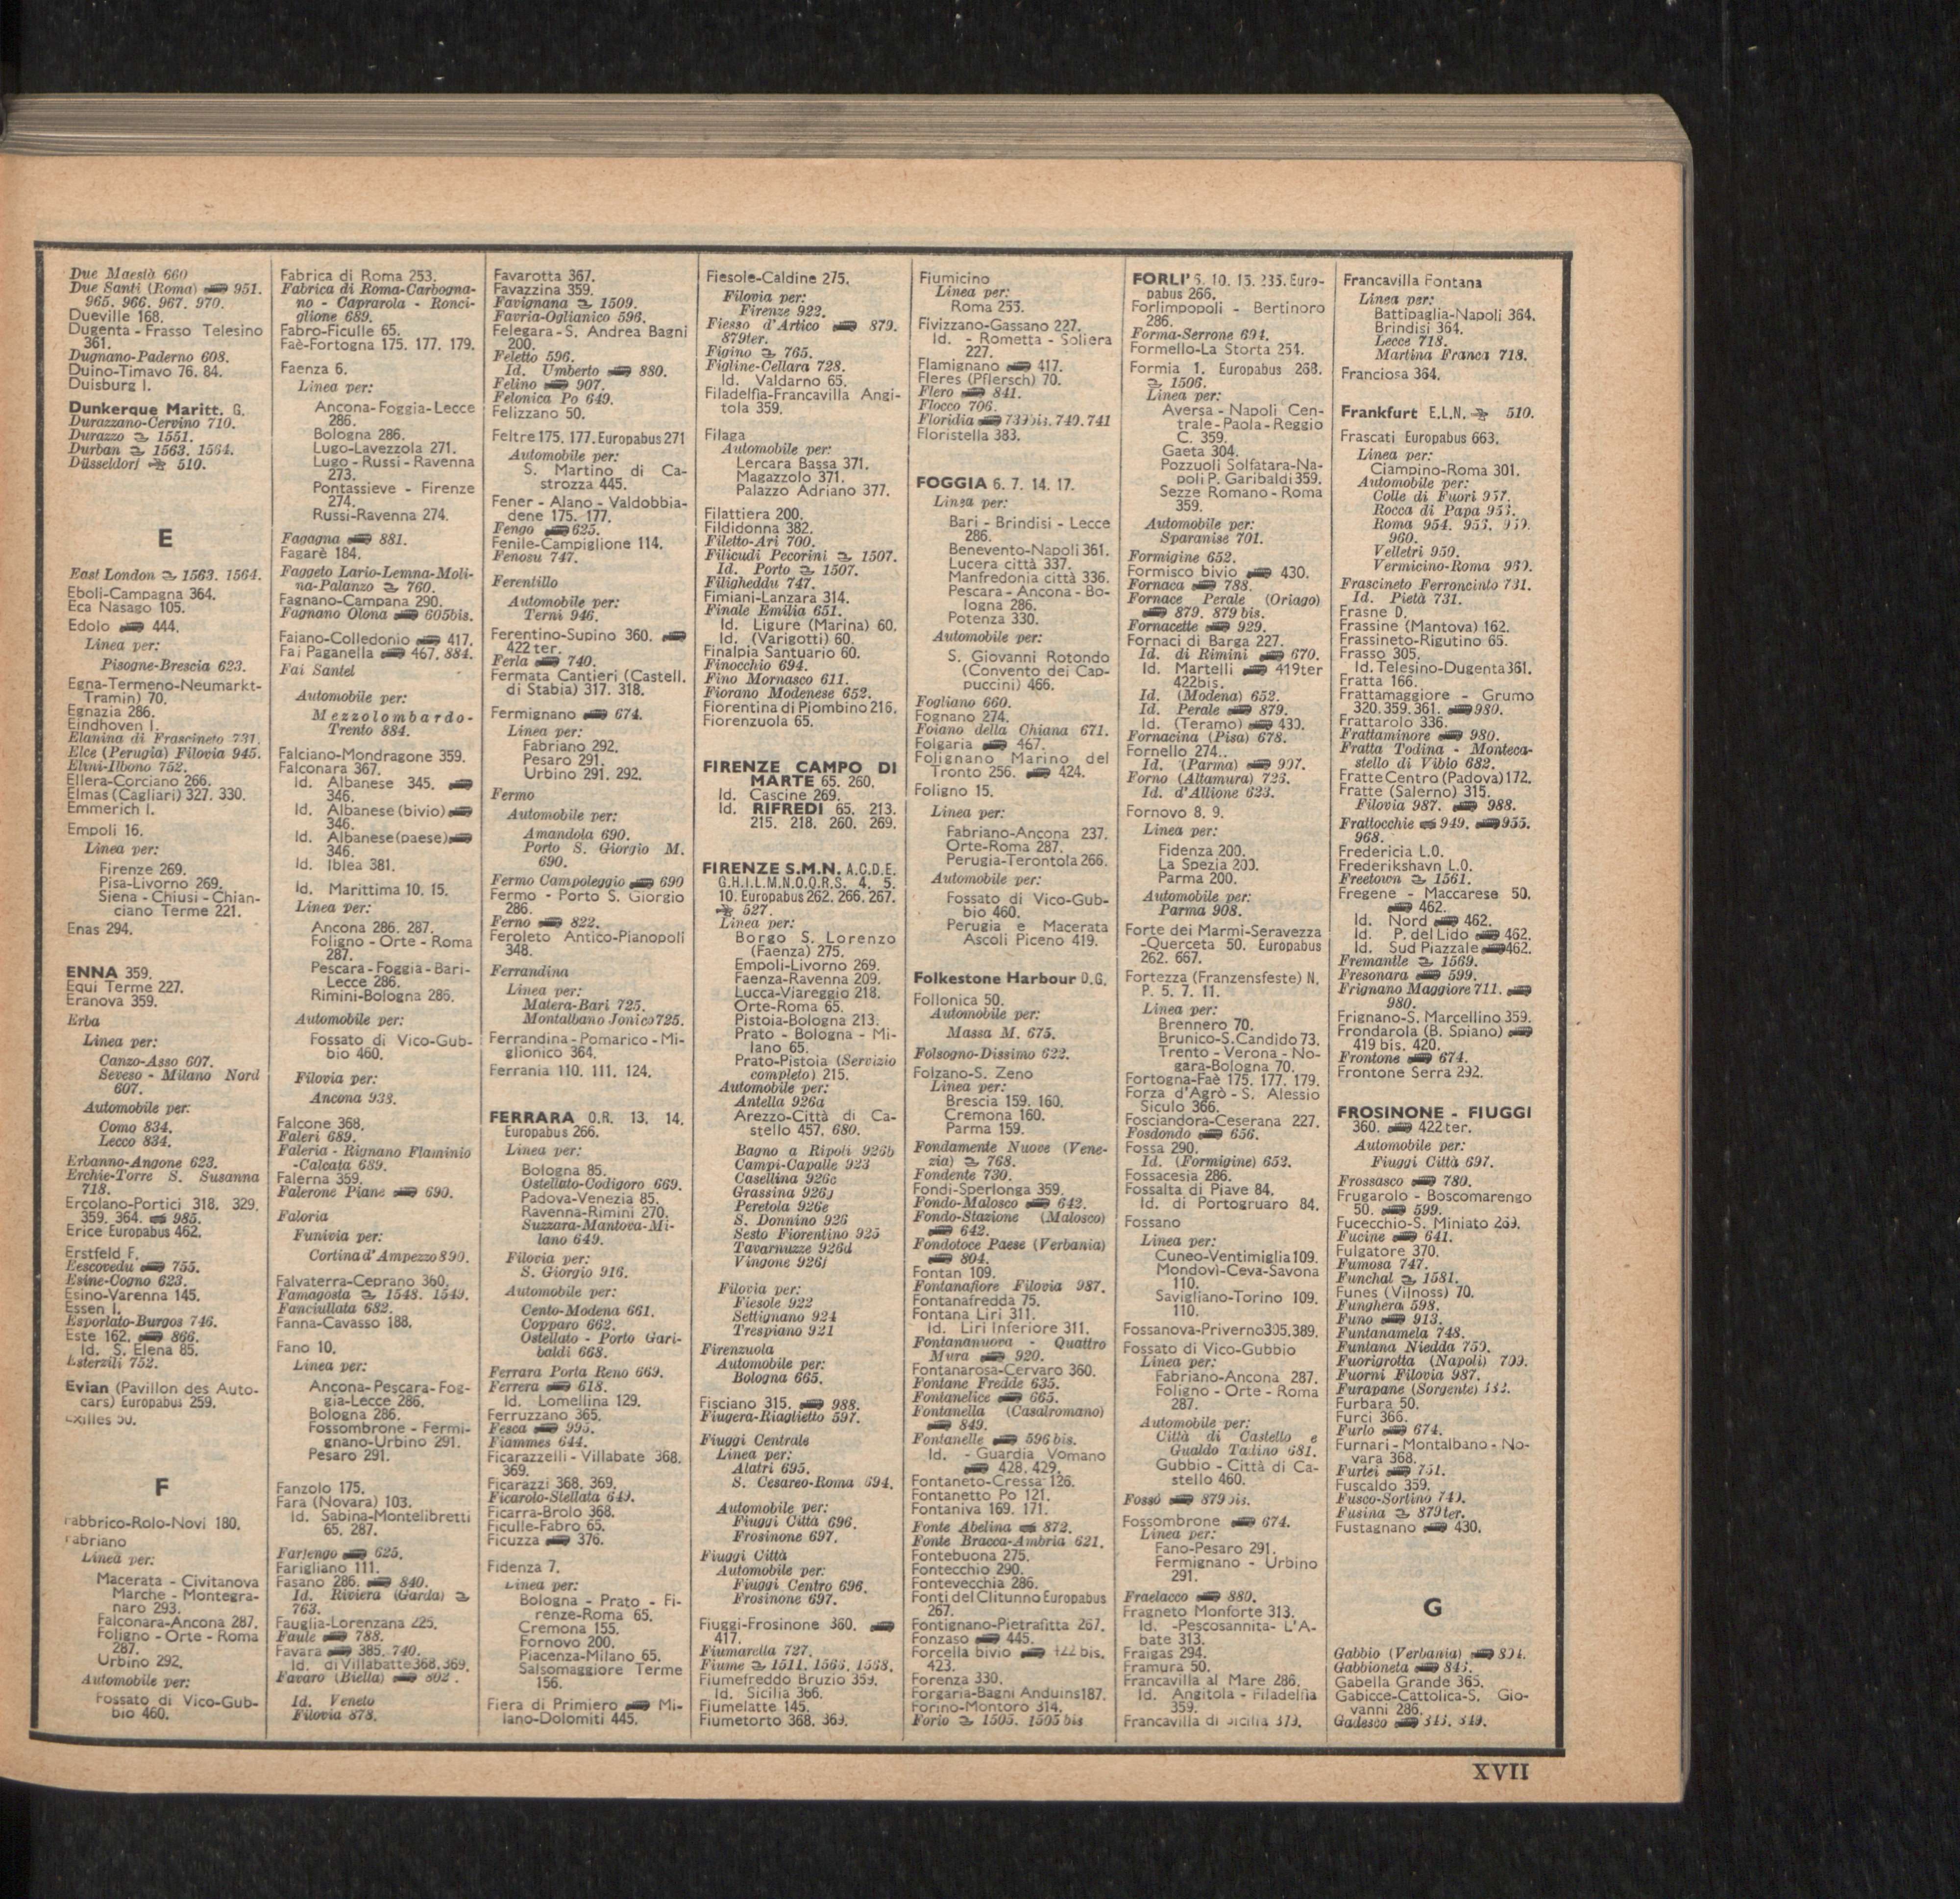 Due Maestà 660
Due Santi (Roma) 951.
965. 966. 967. 970.
Dueville 168.
Dugenta - Frasso Telesino
361.
Dugnano-Paderno 608.
Duino-Timavo 76. 84.
Duisburg I.
Dunkerque Maritt. G.
Durazzano-Cervino 710.
Durazzo 1551.
Durban 1563. 1564.
Düsseldorf 510.
E
East London 1563. 1564.
Eboli-Campagna 364.
Eca Nasago 105.
Edolo 444.
Linea per:
Pisogne-Brescia 623.
Egna-Termeno-Neumarkt-
Tramin) 70.
Egnazia 286.
Eindhoven I.
Elanina di Frascineto 731.
Elce (Perugia) Filovia 945.
Elini-Ilbono 752.
Ellera-Corciano 266.
Elmas (Cagliari) 327. 330.
Emmerich I.
Empoli 16.
Linea per:
Firenze 269.
Pisa-Livorno 269.
Siena - Chiusi - Chian-
ciano Terme 221.
Enas 294.
ENNA 359.
Equi Terme 227.
Eranova 359.
Erba
Linea per:
Canzo-Asso 607.
Seveso - Milano Nord
607.
Automobile per:
Como 834.
Lecco 834.
Erbanno-Angone 623.
Erchie-Torre S. Susanna
718.
Ercolano-Portici 318. 329.
359. 364. 985.
Erice Europabus 462.
Erstfeld F.
Eescovedu 755.
Esine-Cogno 623.
Esino-Varenna 145.
Essen I.
Esporlato-Burgos 746.
Este 162. 866.
Id. S. Elena 85.
Esterzili 752.
Evian (Pavillon des Auto-
cars) Europabus 259.
Exilles 50.
F
Fabbrico-Rolo-Novi 180.
Fabriano
Linea per:
Macerata - Civitanova
Marche - Montegra-
naro 293.
Falconara-Ancona 287.
Foligno - Orte - Roma
287.
Urbino 292.
Automobile per:
Fossato di Vico-Gub-
bio 460.
Fabrica di Roma 253.
Fabrica di Roma-Carbogna-
no - Caprarola - Ronci-
glione 689.
Fabro-Ficulle 65.
Faè-Fortogna 175. 177. 179.
Faenza 6.
Linea per:
Ancona-Foggia-Lecce
286.
Bologna 286.
Lugo-Lavezzola 271.
Lugo - Russi - Ravenna
273.
Pontassieve - Firenze
274.
Russi-Ravenna 274.
Fagagna 881.
Fagarè 184.
Faggeto Lario-Lemna-Moli-
na-Palanzo 760.
Fagnano-Campana 290.
Fagnano Olona 605bis.
Faiano-Colledonio 417.
Fai Paganella 467. 884.
Fai Santel
Automobile per:
Mezzolombardo-
Trento 884.
Falciano-Mondragone 359.
Falconara 367.
Id. Albanese 345.
346.
Id. Albanese (bivio)
346.
Id. Albanese (paese)
346.
Id. Iblea 381.
Id. Marittima 10. 15.
Linea per:
Ancona 286. 287.
Foligno - Orte - Roma
287.
Pescara - Foggia - Bari-
Lecce 286.
Rimini-Bologna 286.
Automobile per:
Fossato di Vico-Gub-
bio 460.
Filovia per:
Ancona 933.
Falcone 368.
Faleri 689.
Faleria - Rignano Flaminio
-Calcata 689.
Falerna 359.
Falerone Piane 690.
Faloria
Funivia per:
Cortina d'Ampezzo 890.
Falvaterra-Ceprano 360.
Famagosta 1548. 1549.
Fanciullata 682.
Fanna-Cavasso 188.
Fano 10.
Linea per:
Ancona-Pescara-Fog-
gia-Lecce 286.
Bologna 286.
Fossombrone - Fermi-
gnano-Urbino 291.
Pesaro 291.
Fanzolo 175.
Fara (Novara) 103.
Id. Sabina-Montelibretti
65. 287.
Farfengo 625.
Farigliano 111.
Fasano 286. 840.
Id. Riviera (Garda)
763.
Fauglia-Lorenzana 225.
Faule 788.
Favara 385. 740.
Id. di Villabatte 368. 369.
Favaro (Biella) 802.
Id. Veneto
Filovia 878.
Favarotta 367.
Favazzina 359.
Favignana 1509.
Favria-Oglianico 596.
Felegara - S. Andrea Bagni
200.
Feletto 596.
Id. Umberto 880.
Felino 907.
Felonica Po 649.
Felizzano 50.
Feltre 175. 177. Europabus 271
Automobile per:
S. Martino di Ca-
strozza 445.
Fener - Alano - Valdobbia-
dene 175. 177.
Fengo 625.
Fenile-Campiglione 114.
Fenosu 747.
Ferentillo
Automobile per:
Terni 946.
Ferentino-Supino 360.
422 ter.
Ferla 740.
Fermata Cantieri (Castell.
di Stabia) 317. 318.
Fermignano 674.
Linea per:
Fabriano 292.
Pesaro 291.
Urbino 291. 292.
Fermo
Automobile per:
Amandola 690.
Porto S. Giorgio M.
690.
Fermo Campoleggio 690
Fermo - Porto S. Giorgio
286.
Ferno 822.
Feroleto Antico-Pianopoli
348.
Ferrandina
Linea per:
Matera-Bari 725.
Montalbano Jonico 725.
Ferrandina - Pomarico - Mi-
glionico 364.
Ferrania 110. 111. 124.
FERRARA O.R. 13. 14.
Europabus 266.
Linea per:
Bologna 85.
Ostellato-Codigoro 669.
Padova-Venezia 85.
Ravenna-Rimini 270.
Suzzara-Mantova-Mi-
lano 649.
Filovia per:
S. Giorgio 916.
Automobile per:
Cento-Modena 661.
Copparo 662.
Ostellato - Porto Gari-
baldi 668.
Ferrara Porta Reno 669.
Ferrera 618.
Id. Lomellina 129.
Ferruzzano 365.
Fesca 995.
Fiammes 644.
Ficarazzelli - Villabate 368.
369.
Ficarazzi 368. 369.
Ficarolo-Stellata 649.
Ficarra-Brolo 368.
Ficulle-Fabro 65.
Ficuzza 376.
Fidenza 7.
Linea per:
Bologna - Prato - Fi-
renze-Roma 65.
Cremona 155.
Fornovo 200.
Piacenza-Milano 65.
Salsomaggiore Terme
156.
Fiera di Primiero Mi-
lano-Dolomiti 445.
Fiesole-Caldine 275.
Filovia per:
Firenze 922.
Fiesso d'Artico 879.
879ter.
Figino 765.
Figline-Cellara 728.
Id. Valdarno 65.
Filadelfia-Francavilla Angi-
tola 359.
Filaga
Automobile per:
Lercara Bassa 371.
Magazzolo 371.
Palazzo Adriano 377.
Filattiera 200.
Fildidonna 382.
Filetto-Ari 700.
Filicudi Pecorini 1507.
Id. Porto 1507.
Filigheddu 747.
Fimiani-Lanzara 314.
Finale Emilia 651.
Id. Ligure (Marina) 60.
Id. (Varigotti) 60.
Finalpia Santuario 60.
Finocchio 694.
Fino Mornasco 611.
Fiorano Modenese 652.
Fiorentina di Piombino 216.
Fiorenzuola 65.
FIRENZE CAMPO DI
MARTE 65. 260.
Id. Cascine 269.
Id. RIFREDI 65. 213.
215. 218. 260. 269.
FIRENZE S.M.N. A.C.D.E.
G.H.I.L.M.N.O.Q.R.S. 4. 5.
10. Europabus 262. 266. 267.
527.
Linea per:
Borgo S. Lorenzo
(Faenza) 275.
Empoli-Livorno 269.
Faenza-Ravenna 209.
Lucca-Viareggio 218.
Orte-Roma 65.
Pistoia-Bologna 213.
Prato - Bologna - Mi-
lano 65.
Prato-Pistoia (Servizio
completo) 215.
Automobile per:
Antella 926a
Arezzo-Città di Ca-
stello 457. 680.
Bagno a Ripoli 926b
Campi-Capalle 923
Casellina 926c
Grassina 926j
Peretola 926e
S. Donnino 926
Sesto Fiorentino 925
Tavarnuzze 926d
Vingone 926f
Filovia per:
Fiesole 922
Settignano 924
Trespiano 921
Firenzuola
Automobile per:
Bologna 665.
Fisciano 315. 988.
Fiugera-Riaglietto 597.
Fiuggi Centrale
Linea per:
Alatri 695.
S. Cesareo-Roma 694.
Automobile per:
Fiuggi Città 696.
Frosinone 697.
Fiuggi Città
Automobile per:
Fiuggi Centro 696.
Frosinone 697.
Fiuggi-Frosinone 360.
417.
Fiumarella 727.
Fiume 1511. 1566. 1568.
Fiumefreddo Bruzio 359.
Id. Sicilia 366.
Fiumelatte 145.
Fiumetorto 368. 369.
Fiumicino
Linea per:
Roma 253.
Fivizzano-Gassano 227.
Id. - Rometta - Soliera
227.
Flamignano 417.
Fleres (Pflersch) 70.
Flero 841.
Flocco 706.
Floridia 739bis. 740. 741
Floristella 383.
FOGGIA 6. 7. 14. 17.
Linea per:
Bari - Brindisi - Lecce
286.
Benevento-Napoli 361.
Lucera città 337.
Manfredonia città 336.
Pescara - Ancona - Bo-
logna 286.
Potenza 330.
Automobile per:
S. Giovanni Rotondo
(Convento dei Cap-
puccini) 466.
Fogliano 660.
Fognano 274.
Foiano della Chiana 671.
Folgaria 467.
Folignano Marino del
Tronto 256. 424.
Foligno 15.
Linea per:
Fabriano-Ancona 237.
Orte-Roma 287.
Perugia-Terontola 266.
Automobile per:
Fossato di Vico-Gub-
bio 460.
Perugia e Macerata
Ascoli Piceno 419.
Folkestone Harbour D.G.
Follonica 50.
Automobile per:
Massa M. 675.
Folsogno-Dissimo 622.
Folzano-S. Zeno
Linea per:
Brescia 159. 160.
Cremona 160.
Parma 159.
Fondamente Nuove (Vene-
zia) 768.
Fondente 730.
Fondi-Sperlonga 359.
Fondo-Malosco 642.
Fondo-Stazione (Malosco)
642.
Fondotoce Paese (Verbania)
804.
Fontan 109.
Fontanafiore Filovia 987.
Fontanafredda 75.
Fontana Liri 311.
Id. Liri Inferiore 311.
Fontananuova - Quattro
Mura 920.
Fontanarosa-Cervaro 360.
Fontane Fredde 635.
Fontanelice 665.
Fontanella (Casalromano)
849.
Fontanelle 596 bis.
Id. - Guardia Vomano
428. 429.
Fontaneto-Cressa 126.
Fontanetto Po 121.
Fontaniva 169. 171.
Fonte Abelina 872.
Fonte Bracca-Ambria 621.
Fontebuona 275.
Fontecchio 290.
Fontevecchia 286.
Fonti del Clitunno Europabus
267.
Fontignano-Pietrafitta 267.
Fonzaso 445.
Forcella bivio 422 bis.
423.
Forenza 330.
Forgaria-Bagni Anduins 187.
Forino-Montoro 314.
Forio 1505. 1505 bis
FORLI' 5. 10. 15. 235. Euro-
pabus 266.
Forlimpopoli - Bertinoro
286.
Forma-Serrone 694.
Formello-La Storta 254.
Formia 1. Europabus 268.
1506.
Linea per:
Aversa - Napoli Cen-
trale - Paola - Reggio
C. 359.
Gaeta 304.
Pozzuoli Solfatara-Na-
poli P. Garibaldi 359.
Sezze Romano - Roma
359.
Automobile per:
Sparanise 701.
Formigine 652.
Formisco bivio 430.
Fornaca 788.
Fornace Perale (Oriago)
879. 879 bis.
Fornacette 929.
Fornaci di Barga 227.
Id. di Rimini 670.
Id. Martelli 419ter
422bis.
Id. (Modena) 652.
Id. Perale 879.
Id. (Teramo) 430.
Fornacina (Pisa) 678.
Fornello 274.
Id. (Parma) 907.
Forno (Altamura) 726.
Id. d'Allione 623.
Fornovo 8. 9.
Linea per:
Fidenza 200.
La Spezia 200.
Parma 200.
Automobile per:
Parma 908.
Forte dei Marmi-Seravezza
-Querceta 50. Europabus
262. 667.
Fortezza (Franzensfeste) N.
P. 5. 7. 11.
Linea per:
Brennero 70.
Brunico-S.Candido 73.
Trento - Verona - No-
gara-Bologna 70.
Fortogna-Faè 175. 177. 179.
Forza d'Agrò - S. Alessio
Siculo 366.
Fosciandora-Ceserana 227.
Fosdondo 656.
Fossa 290.
Id. (Formigine) 652.
Fossacesia 286.
Fossalta di Piave 84.
Id. di Portogruaro 84.
Fossano
Linea per:
Cuneo-Ventimiglia 109.
Mondovì-Ceva-Savona
110.
Savigliano-Torino 109.
110.
Fossanova-Priverno 305.389.
Fossato di Vico-Gubbio
Linea per:
Fabriano-Ancona 287.
Foligno - Orte - Roma
287.
Automobile per:
Città di Castello e
Gualdo Tadino 681.
Gubbio - Città di Ca-
stello 460.
Fossó 879bis.
Fossombrone 674.
Linea per:
Fano-Pesaro 291.
Fermignano - Urbino
291.
Fraelacco 880.
Fragneto Monforte 313.
Id. -Pescosannita- L'A-
bate 313.
Fraigas 294.
Framura 50.
Francavilla al Mare 286.
Id. Angitola - Filadelfia
359.
Francavilla di Sicilia 379.
Francavilla Fontana
Linea per:
Battipaglia-Napoli 364.
Brindisi 364.
Lecce 718.
Martina Franca 718.
Franciosa 364.
Frankfurt E.L.N. 510.
Frascati Europabus 663.
Linea per:
Ciampino-Roma 301.
Automobile per:
Colle di Fuori 957.
Rocca di Papa 953.
Roma 954. 955. 959.
960.
Velletri 950.
Vermicino-Roma 960.
Frascineto Ferroncinto 731.
Id. Pietà 731.
Frasne D.
Frassine (Mantova) 162.
Frassineto-Rigutino 65.
Frasso 305.
Id. Telesino-Dugenta 361.
Fratta 166.
Frattamaggiore - Grumo
320. 359. 361. 980.
Frattarolo 336.
Frattaminore 980.
Fratta Todina - Monteca-
stello di Vibio 682.
Fratte Centro (Padova) 172.
Fratte (Salerno) 315.
Filovia 987. 988.
Frattocchie 949. 955.
968.
Fredericia L.O.
Frederikshavn L.O.
Freetown 1561.
Fregene - Maccarese 50.
462.
Id. Nord 462.
Id. P. del Lido 462.
Id. Sud Piazzale 462.
Fremantle 1569.
Fresonara 599.
Frignano Maggiore 711.
980.
Frignano-S. Marcellino 359.
Frondarola (B. Spiano)
419 bis. 420.
Frontone 674.
Frontone Serra 292.
FROSINONE - FIUGGI
360. 422ter.
Automobile per:
Fiuggi Città 697.
Frossasco 780.
Frugarolo - Boscomarengo
50. 599.
Fucecchio-S. Miniato 269.
Fucine 641.
Fulgatore 370.
Fumosa 747.
Funchal 1581.
Funes (Vilnoss) 70.
Funghera 598.
Funo 913.
Funtanamela 748.
Funtana Niedda 750.
Fuorigrotta (Napoli) 709.
Fuorni Filovia 987.
Furapane (Sorgente)
Furbara 50.
Furci 366.
Furlo 674.
Furnari - Montalbano - No-
vara 368.
Furtei 751.
Fuscaldo 359.
Fusco-Sortino 740.
Fusina 879ter.
Fustagnano 430.
G
Gabbio (Verbania) 804.
Gabbioneta 846.
Gabella Grande 365.
Gabicce-Cattolica-S. Gio-
vanni 286.
Gadesco 849.
XVII